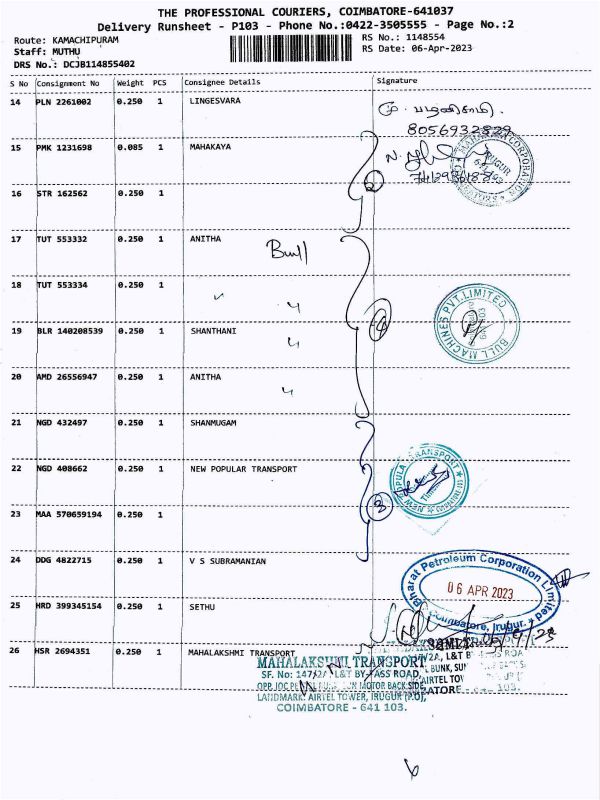 THE PROFESSIONAL COURIERS, COIMBATORE-641037
Delivery Runsheet - P103 - Phone No.:0422-3505555 - Page No.:2
Route: KAMACHIPURAM
Staff: MUTHU
DRS No.: DCJB114855402
RS No.: 1148554
RS Date: 06-Apr-2023
S No Consignment No Weight PCS Consignee Details Signature
14 PLN 2261002 0.250 1 LINGESVARA
மு. பழனிசாமி.
8056932829
15 PMK 1231698 0.085 1 MAHAKAYA
CORPORATION
IRUGUR
2
16 STR 162562 0.250 1
17 TUT 553332 0.250 1 ANITHA
Bull
18 TUT 553334 0.250 1
BULL MACHINES PVT. LIMITED
4
19 BLR 140208539 0.250 1 SHANTHANI
20 AMD 26556947 0.250 1 ANITHA
21 NGD 432497 0.250 1 SHANMUGAM
22 NGD 408662 0.250 1 NEW POPULAR TRANSPORT
NEW POPULA TRANSPORT
3
23 MAA 570659194 0.250 1
24 DDG 4822715 0.250 1 V S SUBRAMANIAN
Bharat Petroleum Corporation Limited
06 APR 2023
Coimbatore, Irugur.
25 HRD 399345154 0.250 1 SETHU
26 HSR 2694351 0.250 1 MAHALAKSHMI TRANSPORT
MAHALAKSHMI TRANSPORT
SF. No: 147/2A, L&T BY-PASS ROAD,
OPP. IOC PETROL BUNK, SUN MOTOR BACK SIDE,
LANDMARK: AIRTEL TOWER, IRUGUR (P.O),
COIMBATORE - 641 103.
6